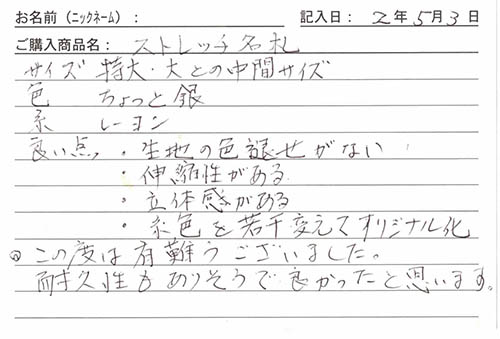 お名前（ニックネーム）： 記入日：2年5月3日
ご購入商品名：ストレッチ名札
サイズ 特大・大との中間サイズ
色 ちょっと銀
糸 レーヨン
良い点 ・生地の色褪せがない
・伸縮性がある
・立体感がある
・糸色を若干変えてオリジナル化
この度は有難うございました。
耐久性もありそうで良かったと思います。